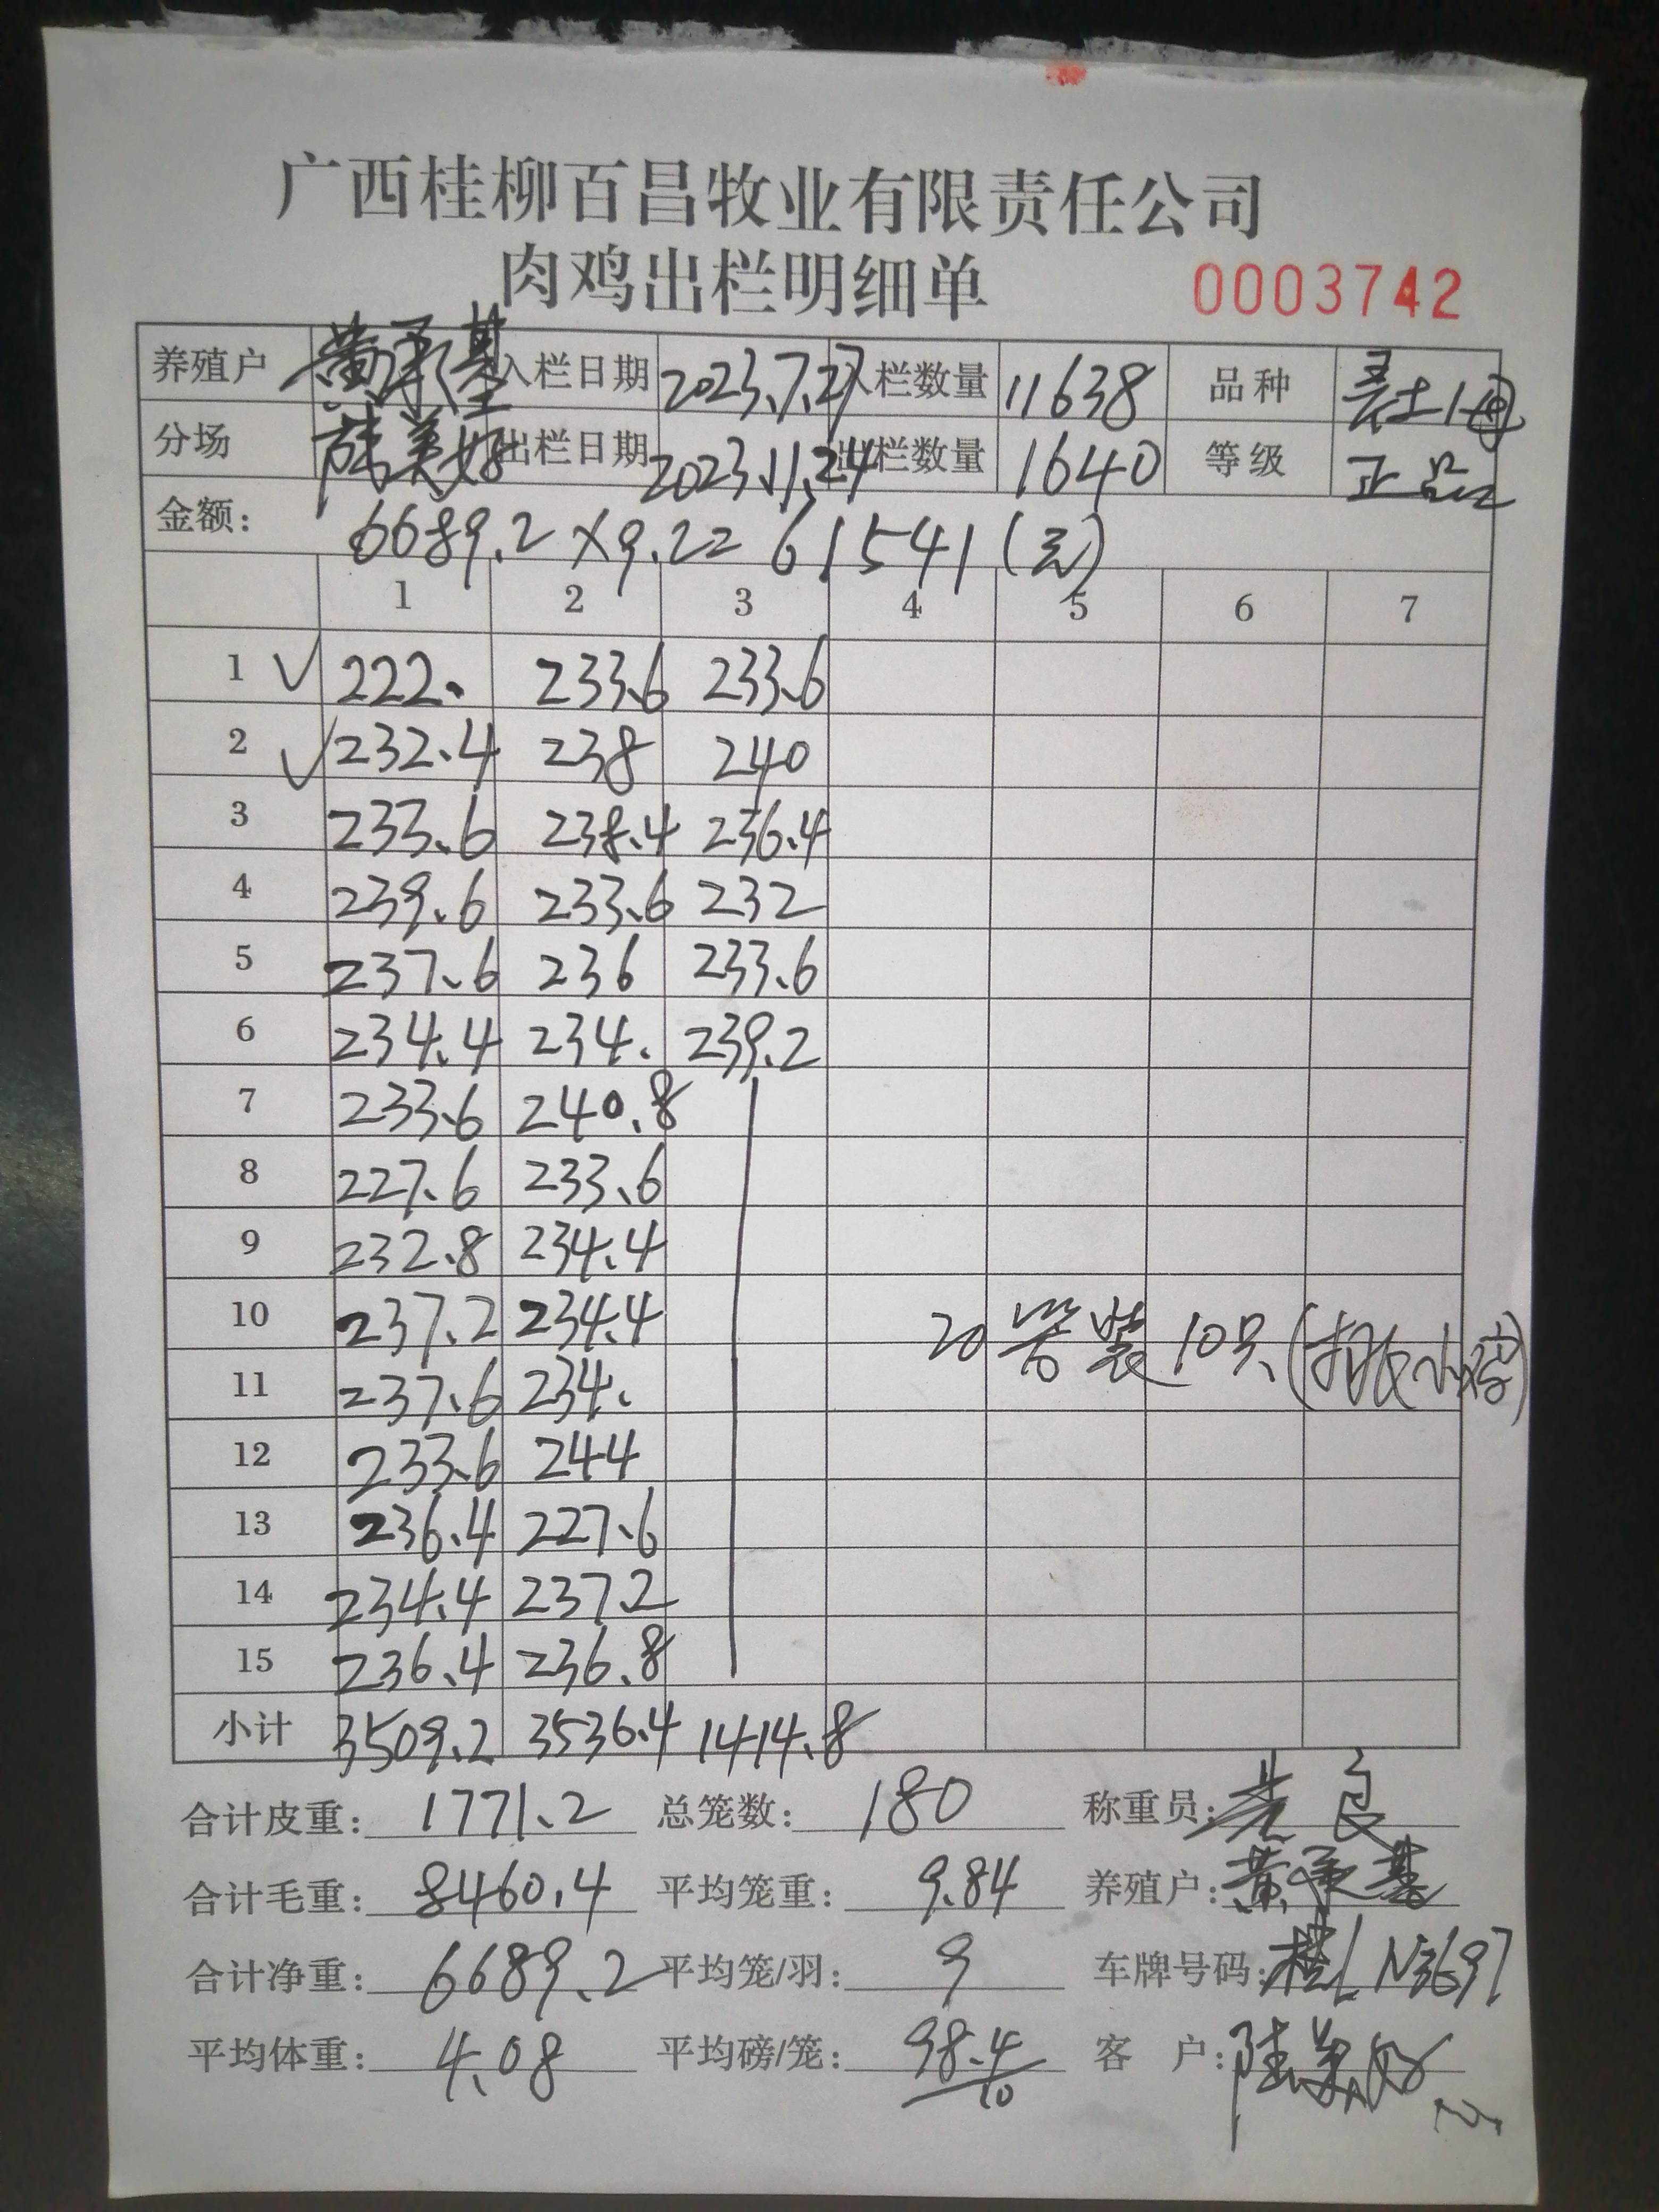 广西桂柳百昌牧业有限责任公司
肉鸡出栏明细单 0003742
养殖户 黄承基 入栏日期 2023.7.27 入栏数量 11638 品种 土1母
分场 陆美好 出栏日期 2023.11.24 出栏数量 1640 等级 正品
金额: 6689.2×9.2= 61541(元)
1 2 3 4 5 6 7
1 √ 222. 233.6 233.6
2 √ 232.4 238 240
3 233.6 238.4 236.4
4 239.6 233.6 232
5 237.6 236 233.6
6 234.4 234. 239.2
7 233.6 240.8
8 227.6 233.6
9 232.8 234.4
10 237.2 234.4 20笼装10只
11 237.6 234.
12 233.6 244
13 236.4 227.6
14 234.4 237.2
15 236.4 236.8
小计 3509.2 3536.4 1414.8
合计皮重: 1771.2 总笼数: 180 称重员: 良
合计毛重: 8460.4 平均笼重: 9.84 养殖户: 黄承基
合计净重: 6689.2 平均笼/羽: 9 车牌号码: 桂L N3697
平均体重: 4.08 平均磅/笼: 98.4/10 客 户: 陆美好